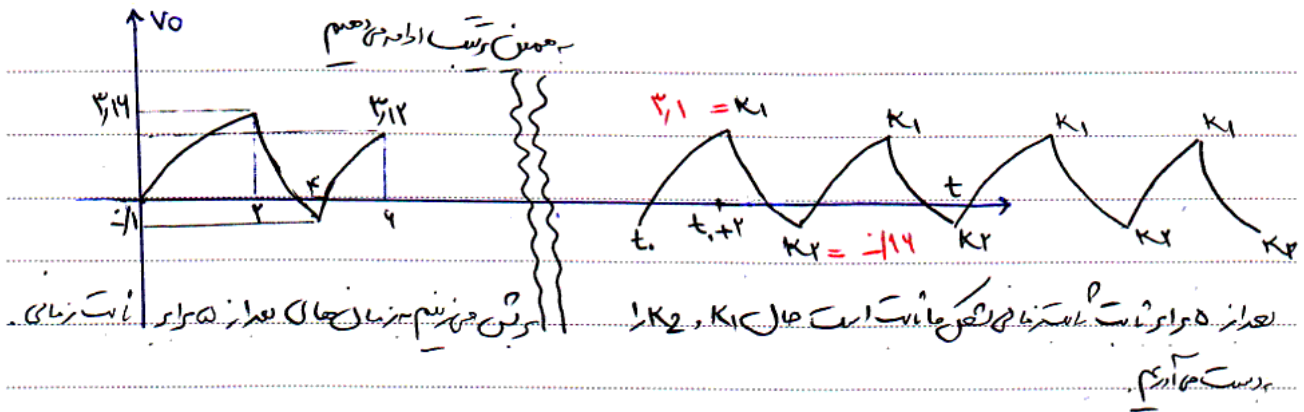 V0
به همین ترتیب ادامه می‌دهیم
۳,۱۶ ۳,۱۲ ۳,۱ = K1 K1 K1 K1
۴ t
-۰/۱ ۲ ۶ t. t.+۲ K۲ = -۰/۱۶ K۲ K۲ K۲
برش می‌زنیم به زمان‌های بعد از ۵ برابر ثابت زمانی.
بعد از ۵ برابر ثابت ثابت زمانی شکل ما ثابت است حال K1 , K2 را
بدست می‌آوریم.